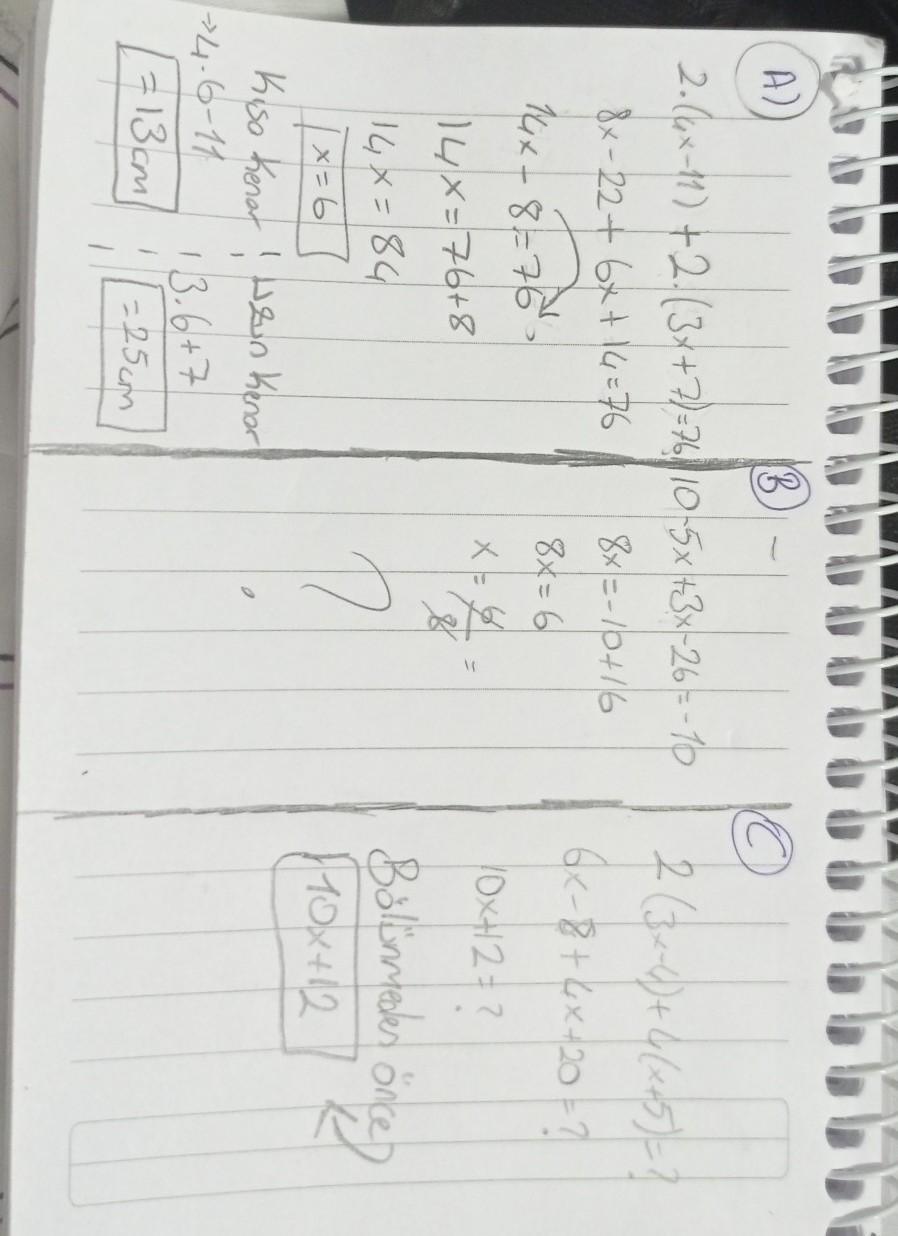 A)
2.(4x-11)+2.(3x+7)=76
8x-22+6x+14=76
14x-8=76
14x=76+8
14x=84
x=6
Kısa kenar
→4.6-11
=13cm
uzun kenar
3.6+7
=25cm
B
10-5x+3x-26=-10
8x=-10+16
8x=6
x=6/8=
?
C
2(3x-4)+4(x+5)=?
6x-8+4x+20=?
10x+12=?
Bölünmeden önce
10x+12